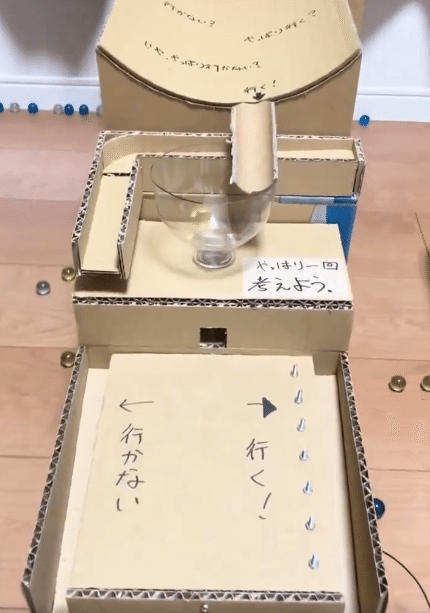 行かない?
やっぱり行く?
いや、やっぱり行かない?
行く!
やっぱり一回
考えよう。
← 行かない
→ 行く!